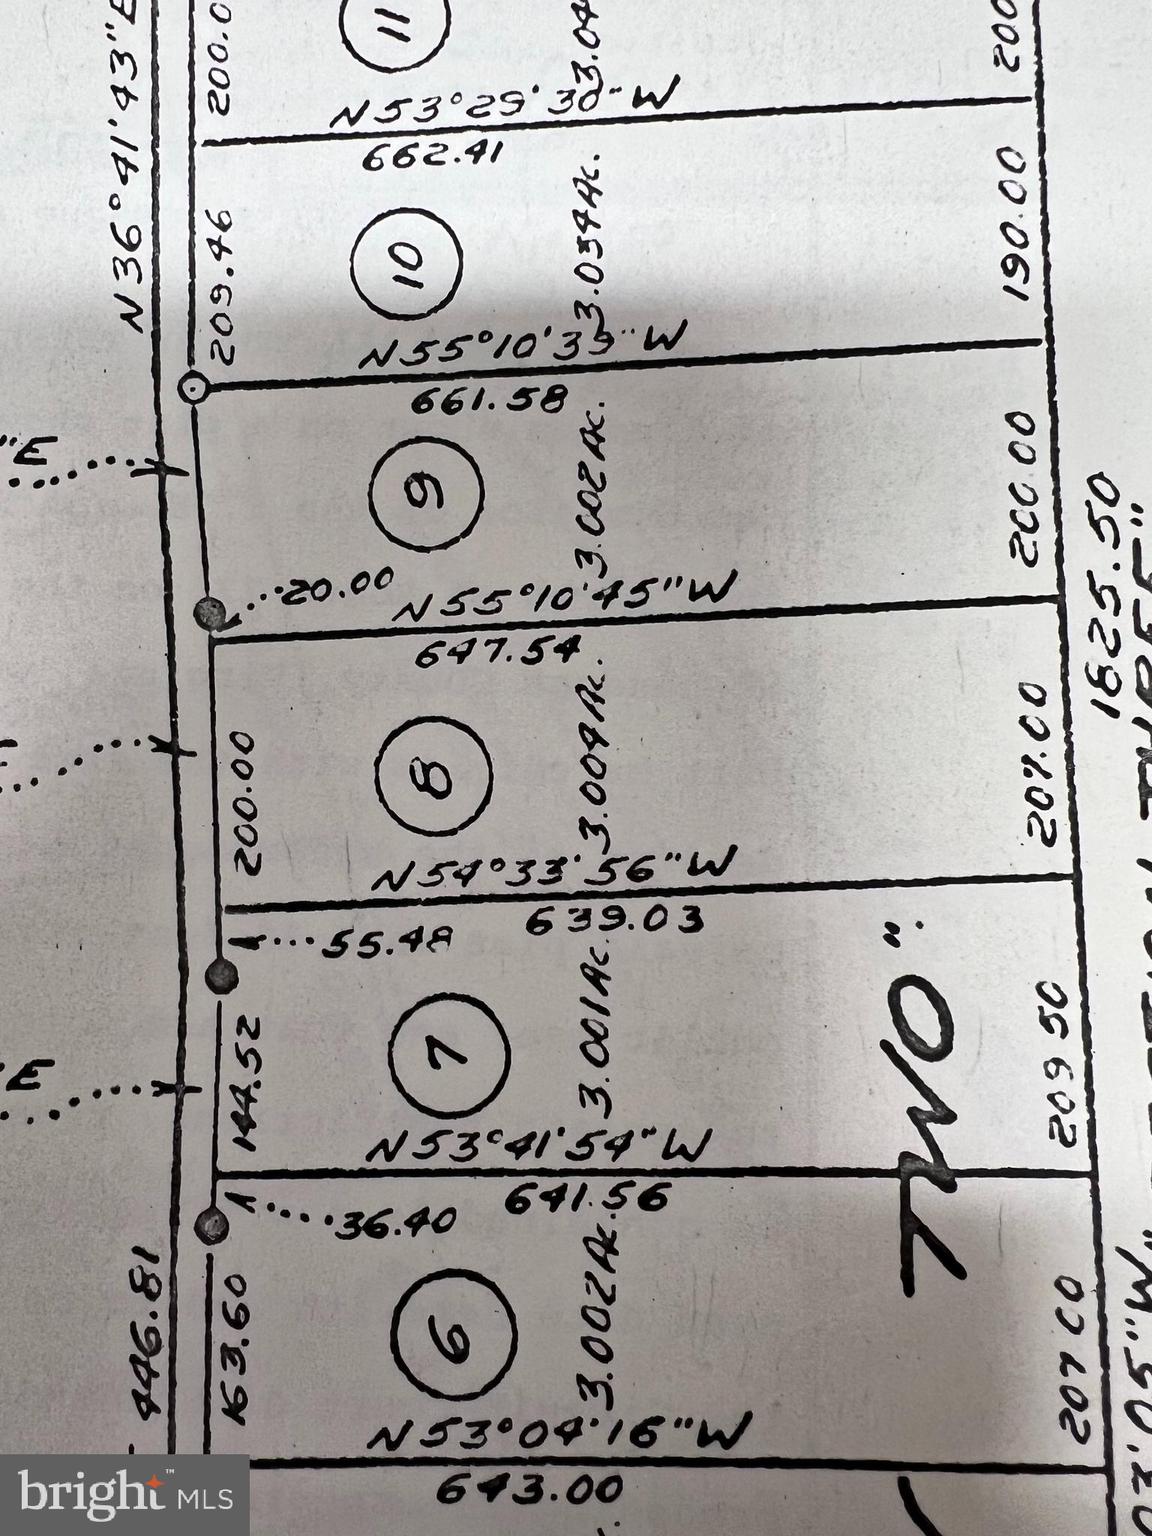 N36°41'43"E
200.0
11
3.04
200
N53°29'30"W
662.41
209.46
10
3.034Ac.
190.00
N55°10'39"W
661.58
"E
9
3.002Ac.
200.00
20.00
N55°10'45"W
647.54
1825.50
200.00
8
3.004Ac.
207.00
N54°33'56"W
639.03
55.48
TWO".
E
144.52
7
3.001Ac.
209 50
N53°41'54"W
641.56
36.40
446.81
163.60
6
3.002Ac.
207 00
03'05"W
N53°04'16"W
643.00
bright™ MLS